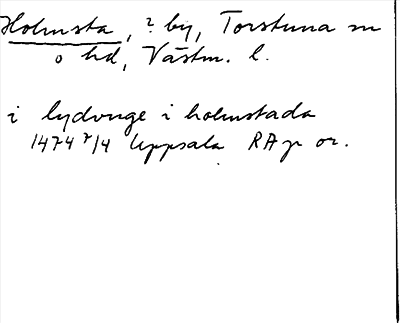 Holmsta, ? by, Torstuna sn
o hd, Västm. l.
i lydvuge i holmstada
1474 7/4 Uppsala RAp or.